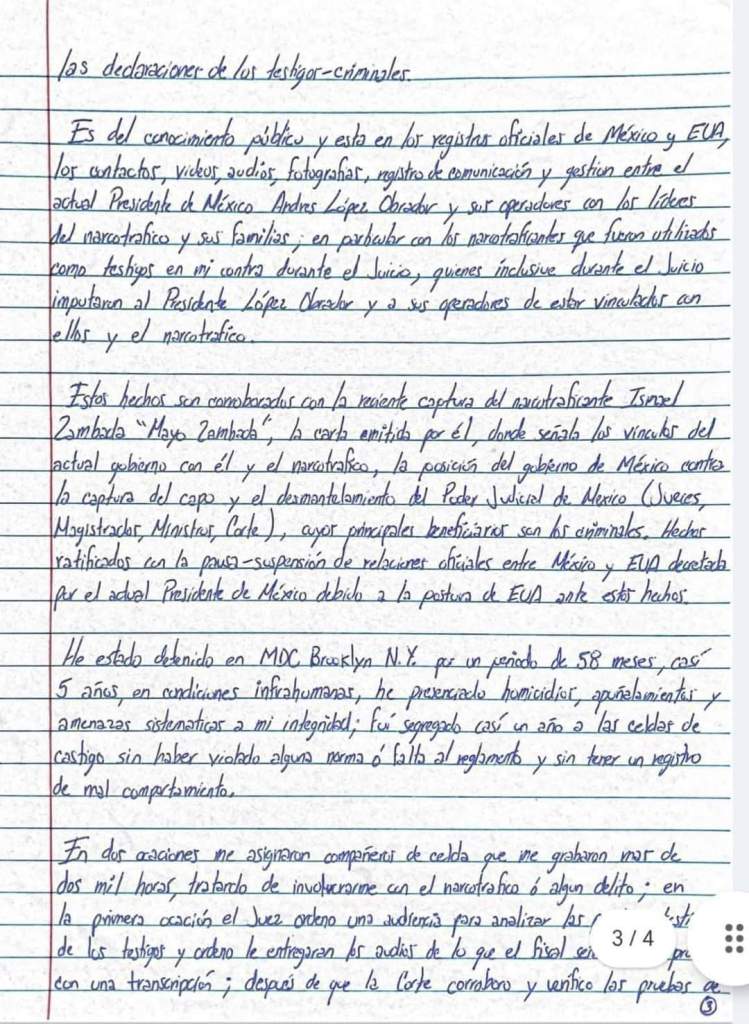 las declaraciones de los testigos-criminales.
Es del conocimiento público y esta en los registros oficiales de México y EUA,
los contactos, videos, audios, fotografias, registro de comunicación y gestion entre el
actual Presidente de México Andres López Obrador y sus operadores con los lideres
del narcotrafico y sus familias; en particular con los narcotraficantes que fueron utilizados
como testigos en mi contra durante el Juicio, quienes inclusive durante el Juicio
imputaron al Presidente López Obrador y a sus operadores de estar vinculados con
ellos y el narcotrafico.
Estos hechos son corroborados con la reciente captura del narcotraficante Ismael
Zambada "Mayo Zambada", la carta emitida por él, donde señala los vinculos del
actual gobierno con él y el narcotrafico, la posición del gobierno de México contra
la captura del capo y el desmantelamiento del Poder Judicial de Mexico (Jueces,
Magistrados, Ministros, Corte), cuyos principales beneficiarios son los criminales. Hechos
ratificados con la pausa-suspensión de relaciones oficiales entre México y EUA decretada
por el actual Presidente de México debido a la postura de EUA ante estos hechos.
He estado detenido en MDC Brooklyn N.Y. por un periodo de 58 meses, casí
5 años, en condiciones infrahumanas, he presenciado homicidios, apuñalamientos y
amenazas sistematicas a mi integridad; fuí segregado casí un año a las celdas de
castigo sin haber violado alguna norma ó falta al reglamento y sin tener un registro
de mal comportamiento.
En dos ocaciones me asignaron compañeros de celda que me grabaron mas de
dos mil horas, tratando de involucrarme con el narcotrafico ó algun delito; en
la primera ocación el Juez ordeno una audiencia para analizar las
de los testigos y ordeno le entregaran los audios de lo que el fiscal
con una transcripción; después de que la Corte corroboro y verifico las pruebas de
3 / 4
3